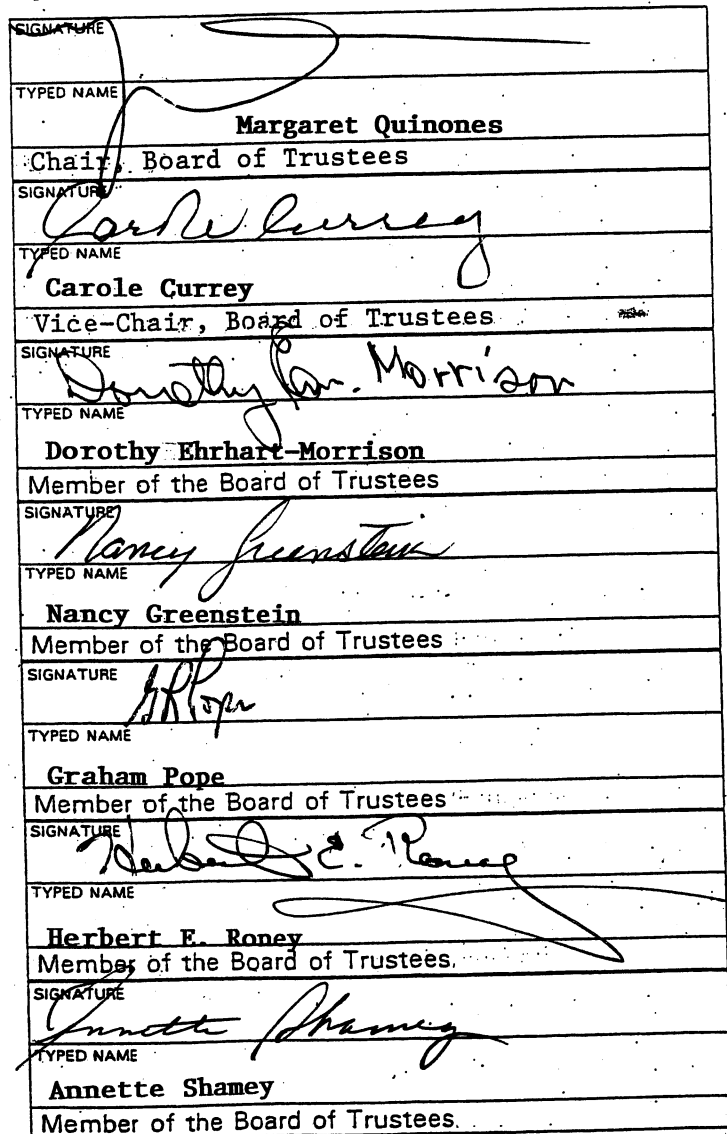 SIGNATURE
TYPED NAME
Margaret Quinones
Chair, Board of Trustees
SIGNATURE
Carole Currey
TYPED NAME
Carole Currey
Vice-Chair, Board of Trustees
SIGNATURE
Dorothy Ehr. Morrison
TYPED NAME
Dorothy Ehrhart-Morrison
Member of the Board of Trustees
SIGNATURE
Nancy Greenstein
TYPED NAME
Nancy Greenstein
Member of the Board of Trustees
SIGNATURE
G R Pope
TYPED NAME
Graham Pope
Member of the Board of Trustees
SIGNATURE
Herbert E. Roney
TYPED NAME
Herbert E. Roney
Member of the Board of Trustees.
SIGNATURE
Annette Shamey
TYPED NAME
Annette Shamey
Member of the Board of Trustees.